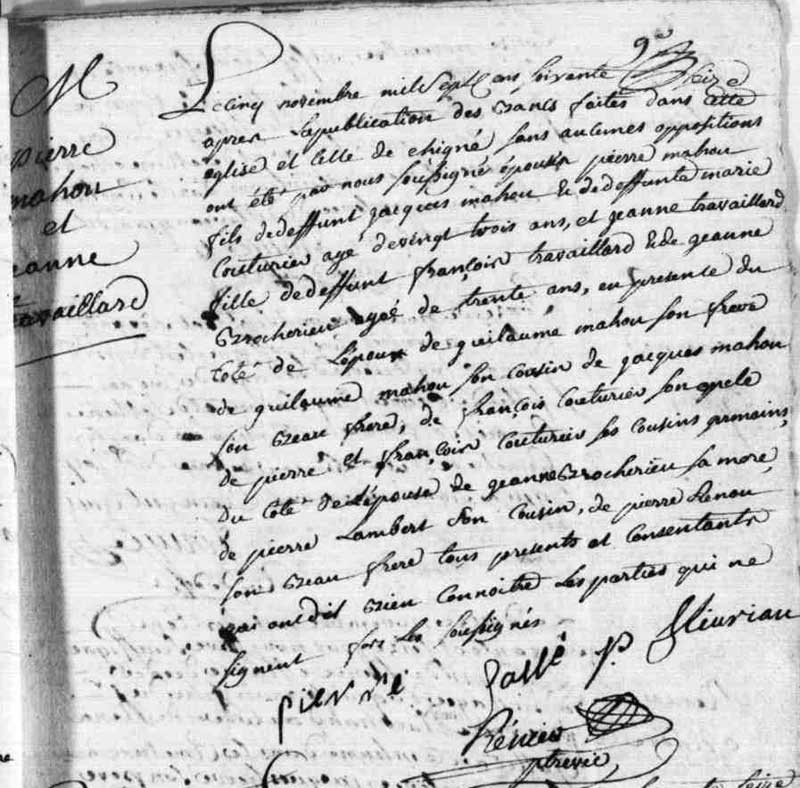 M
Pierre
mahou
et
jeanne
travaillard
Le cinq novembre mil sept cens soixante et seize
apres la publication des bancs faites dans cette
eglise et celle de chigné sans aucunes oppositions
ont été par nous soussigné épousés pierre mahou
fils de deffunt jacques mahou & de deffunte marie
Couturier agé de vingt trois ans, et jeanne travaillard
fille de deffunt françois travaillard & de jeanne
Brocherieu agée de trente ans, en presence du
coté de l'epoux de guillaume mahou son frere
de guilaume mahou son cousin de jacques mahou
son beau frere, de françois couturier son oncle
de pierre et françois couturier ses cousins germains,
du coté de l'épouse de jeanne Brocherieu sa mere,
de pierre Lambert son cousin, de pierre Renou
son beau frere tous presents et consentants
qui ont dit bien connoitre les parties qui ne
signent fors les soussignés
pierre
p. fleuriau